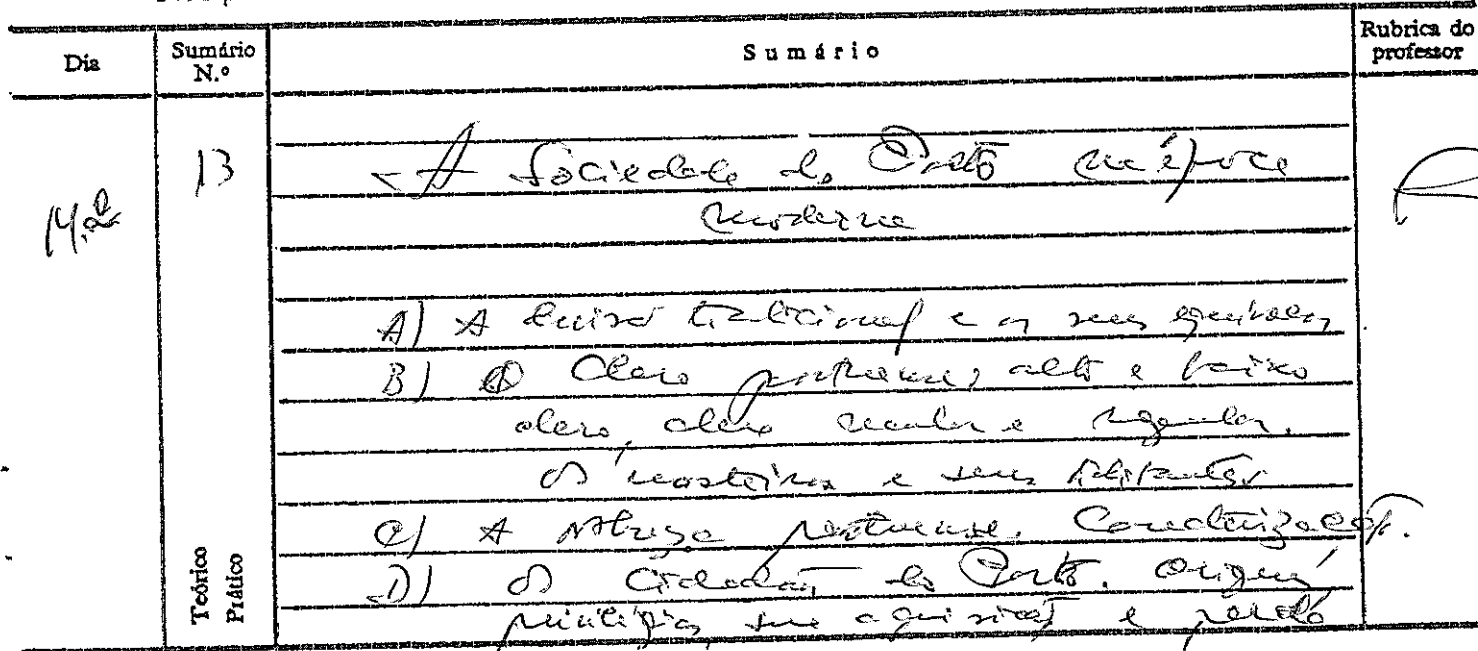 Dia Sumário N.º Sumário Rubrica do professor
13 - A Sociedade do Porto na época
moderna
A) A divisão tradicional e os seus
B) O Clero portuense, alto e baixo
clero, clero secular e regular.
Os mosteiros e seus habitantes
C) A nobreza portuense. Caracterização.
D) Os Cidadãos do Porto. Origens
privilégios, sua aquisição e perda
Teórico
Prático